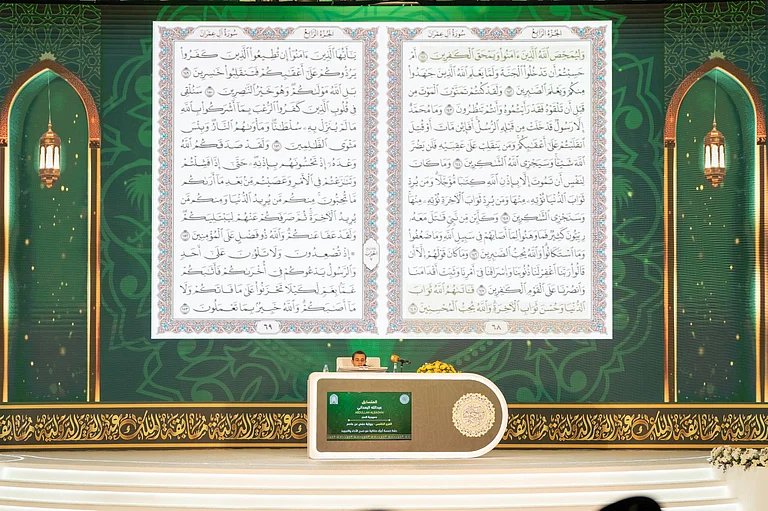 الجُزْءُ الرَّابِعُ
سُورَةُ آلِ عِمْرَانَ
وَلِيُمَحِّصَ ٱللَّهُ ٱلَّذِينَ ءَامَنُوا۟ وَيَمْحَقَ ٱلْكَٰفِرِينَ ١٤١ أَمْ
حَسِبْتُمْ أَن تَدْخُلُوا۟ ٱلْجَنَّةَ وَلَمَّا يَعْلَمِ ٱللَّهُ ٱلَّذِينَ جَٰهَدُوا۟
مِنكُمْ وَيَعْلَمَ ٱلصَّٰبِرِينَ ١٤٢ وَلَقَدْ كُنتُمْ تَمَنَّوْنَ ٱلْمَوْتَ مِن
قَبْلِ أَن تَلْقَوْهُ فَقَدْ رَأَيْتُمُوهُ وَأَنتُمْ تَنظُرُونَ ١٤٣ وَمَا مُحَمَّدٌ
إِلَّا رَسُولٌ قَدْ خَلَتْ مِن قَبْلِهِ ٱلرُّسُلُ أَفَإِي۟ن مَّاتَ أَوْ قُتِلَ
ٱنقَلَبْتُمْ عَلَىٰٓ أَعْقَٰبِكُمْ وَمَن يَنقَلِبْ عَلَىٰ عَقِبَيْهِ فَلَن يَضُرَّ
ٱللَّهَ شَيْـًٔا وَسَيَجْزِى ٱللَّهُ ٱلشَّٰكِرِينَ ١٤٤ وَمَا كَانَ
لِنَفْسٍ أَن تَمُوتَ إِلَّا بِإِذْنِ ٱللَّهِ كِتَٰبًا مُّؤَجَّلًا وَمَن يُرِدْ
ثَوَابَ ٱلدُّنْيَا نُؤْتِهِۦ مِنْهَا وَمَن يُرِدْ ثَوَابَ ٱلْءَاخِرَةِ نُؤْتِهِۦ مِنْهَا
وَسَنَجْزِى ٱلشَّٰكِرِينَ ١٤٥ وَكَأَيِّن مِّن نَّبِىٍّ قَٰتَلَ مَعَهُۥ
رِبِّيُّونَ كَثِيرٌ فَمَا وَهَنُوا۟ لِمَآ أَصَابَهُمْ فِى سَبِيلِ ٱللَّهِ وَمَا ضَعُفُوا۟
وَمَا ٱسْتَكَانُوا۟ وَٱللَّهُ يُحِبُّ ٱلصَّٰبِرِينَ ١٤٦ وَمَا كَانَ قَوْلَهُمْ إِلَّآ أَن
قَالُوا۟ رَبَّنَا ٱغْفِرْ لَنَا ذُنُوبَنَا وَإِسْرَافَنَا فِىٓ أَمْرِنَا وَثَبِّتْ أَقْدَامَنَا
وَٱنصُرْنَا عَلَى ٱلْقَوْمِ ٱلْكَٰفِرِينَ ١٤٧ فَـَٔاتَىٰهُمُ ٱللَّهُ ثَوَابَ
ٱلدُّنْيَا وَحُسْنَ ثَوَابِ ٱلْءَاخِرَةِ وَٱللَّهُ يُحِبُّ ٱلْمُحْسِنِينَ ١٤٨
٦٨
الجُزْءُ الرَّابِعُ
سُورَةُ آلِ عِمْرَانَ
يَٰٓأَيُّهَا ٱلَّذِينَ ءَامَنُوٓا۟ إِن تُطِيعُوا۟ ٱلَّذِينَ كَفَرُوا۟
يَرُدُّوكُمْ عَلَىٰٓ أَعْقَٰبِكُمْ فَتَنقَلِبُوا۟ خَٰسِرِينَ ١٤٩
بَلِ ٱللَّهُ مَوْلَىٰكُمْ وَهُوَ خَيْرُ ٱلنَّٰصِرِينَ ١٥٠ سَنُلْقِى
فِى قُلُوبِ ٱلَّذِينَ كَفَرُوا۟ ٱلرُّعْبَ بِمَآ أَشْرَكُوا۟ بِٱللَّهِ
مَا لَمْ يُنَزِّلْ بِهِۦ سُلْطَٰنًا وَمَأْوَىٰهُمُ ٱلنَّارُ وَبِئْسَ
مَثْوَى ٱلظَّٰلِمِينَ ١٥١ وَلَقَدْ صَدَقَكُمُ ٱللَّهُ
وَعْدَهُۥٓ إِذْ تَحُسُّونَهُم بِإِذْنِهِۦ حَتَّىٰٓ إِذَا فَشِلْتُمْ
وَتَنَٰزَعْتُمْ فِى ٱلْأَمْرِ وَعَصَيْتُم مِّنۢ بَعْدِ مَآ أَرَىٰكُم
مَّا تُحِبُّونَ مِنكُم مَّن يُرِيدُ ٱلدُّنْيَا وَمِنكُم مَّن
يُرِيدُ ٱلْءَاخِرَةَ ثُمَّ صَرَفَكُمْ عَنْهُمْ لِيَبْتَلِيَكُمْ
وَلَقَدْ عَفَا عَنكُمْ وَٱللَّهُ ذُو فَضْلٍ عَلَى ٱلْمُؤْمِنِينَ ١٥٢
۞ إِذْ تُصْعِدُونَ وَلَا تَلْوُۥنَ عَلَىٰٓ أَحَدٍ
وَٱلرَّسُولُ يَدْعُوكُمْ فِىٓ أُخْرَىٰكُمْ فَأَثَٰبَكُمْ
غَمًّۢا بِغَمٍّ لِّكَيْلَا تَحْزَنُوا۟ عَلَىٰ مَا فَاتَكُمْ وَلَا
مَآ أَصَٰبَكُمْ وَٱللَّهُ خَبِيرٌۢ بِمَا تَعْمَلُونَ ١٥٣
٦٩
المتسابق
عبدالله الهمداني
مسابقة الملك عبد العزيز الدولية